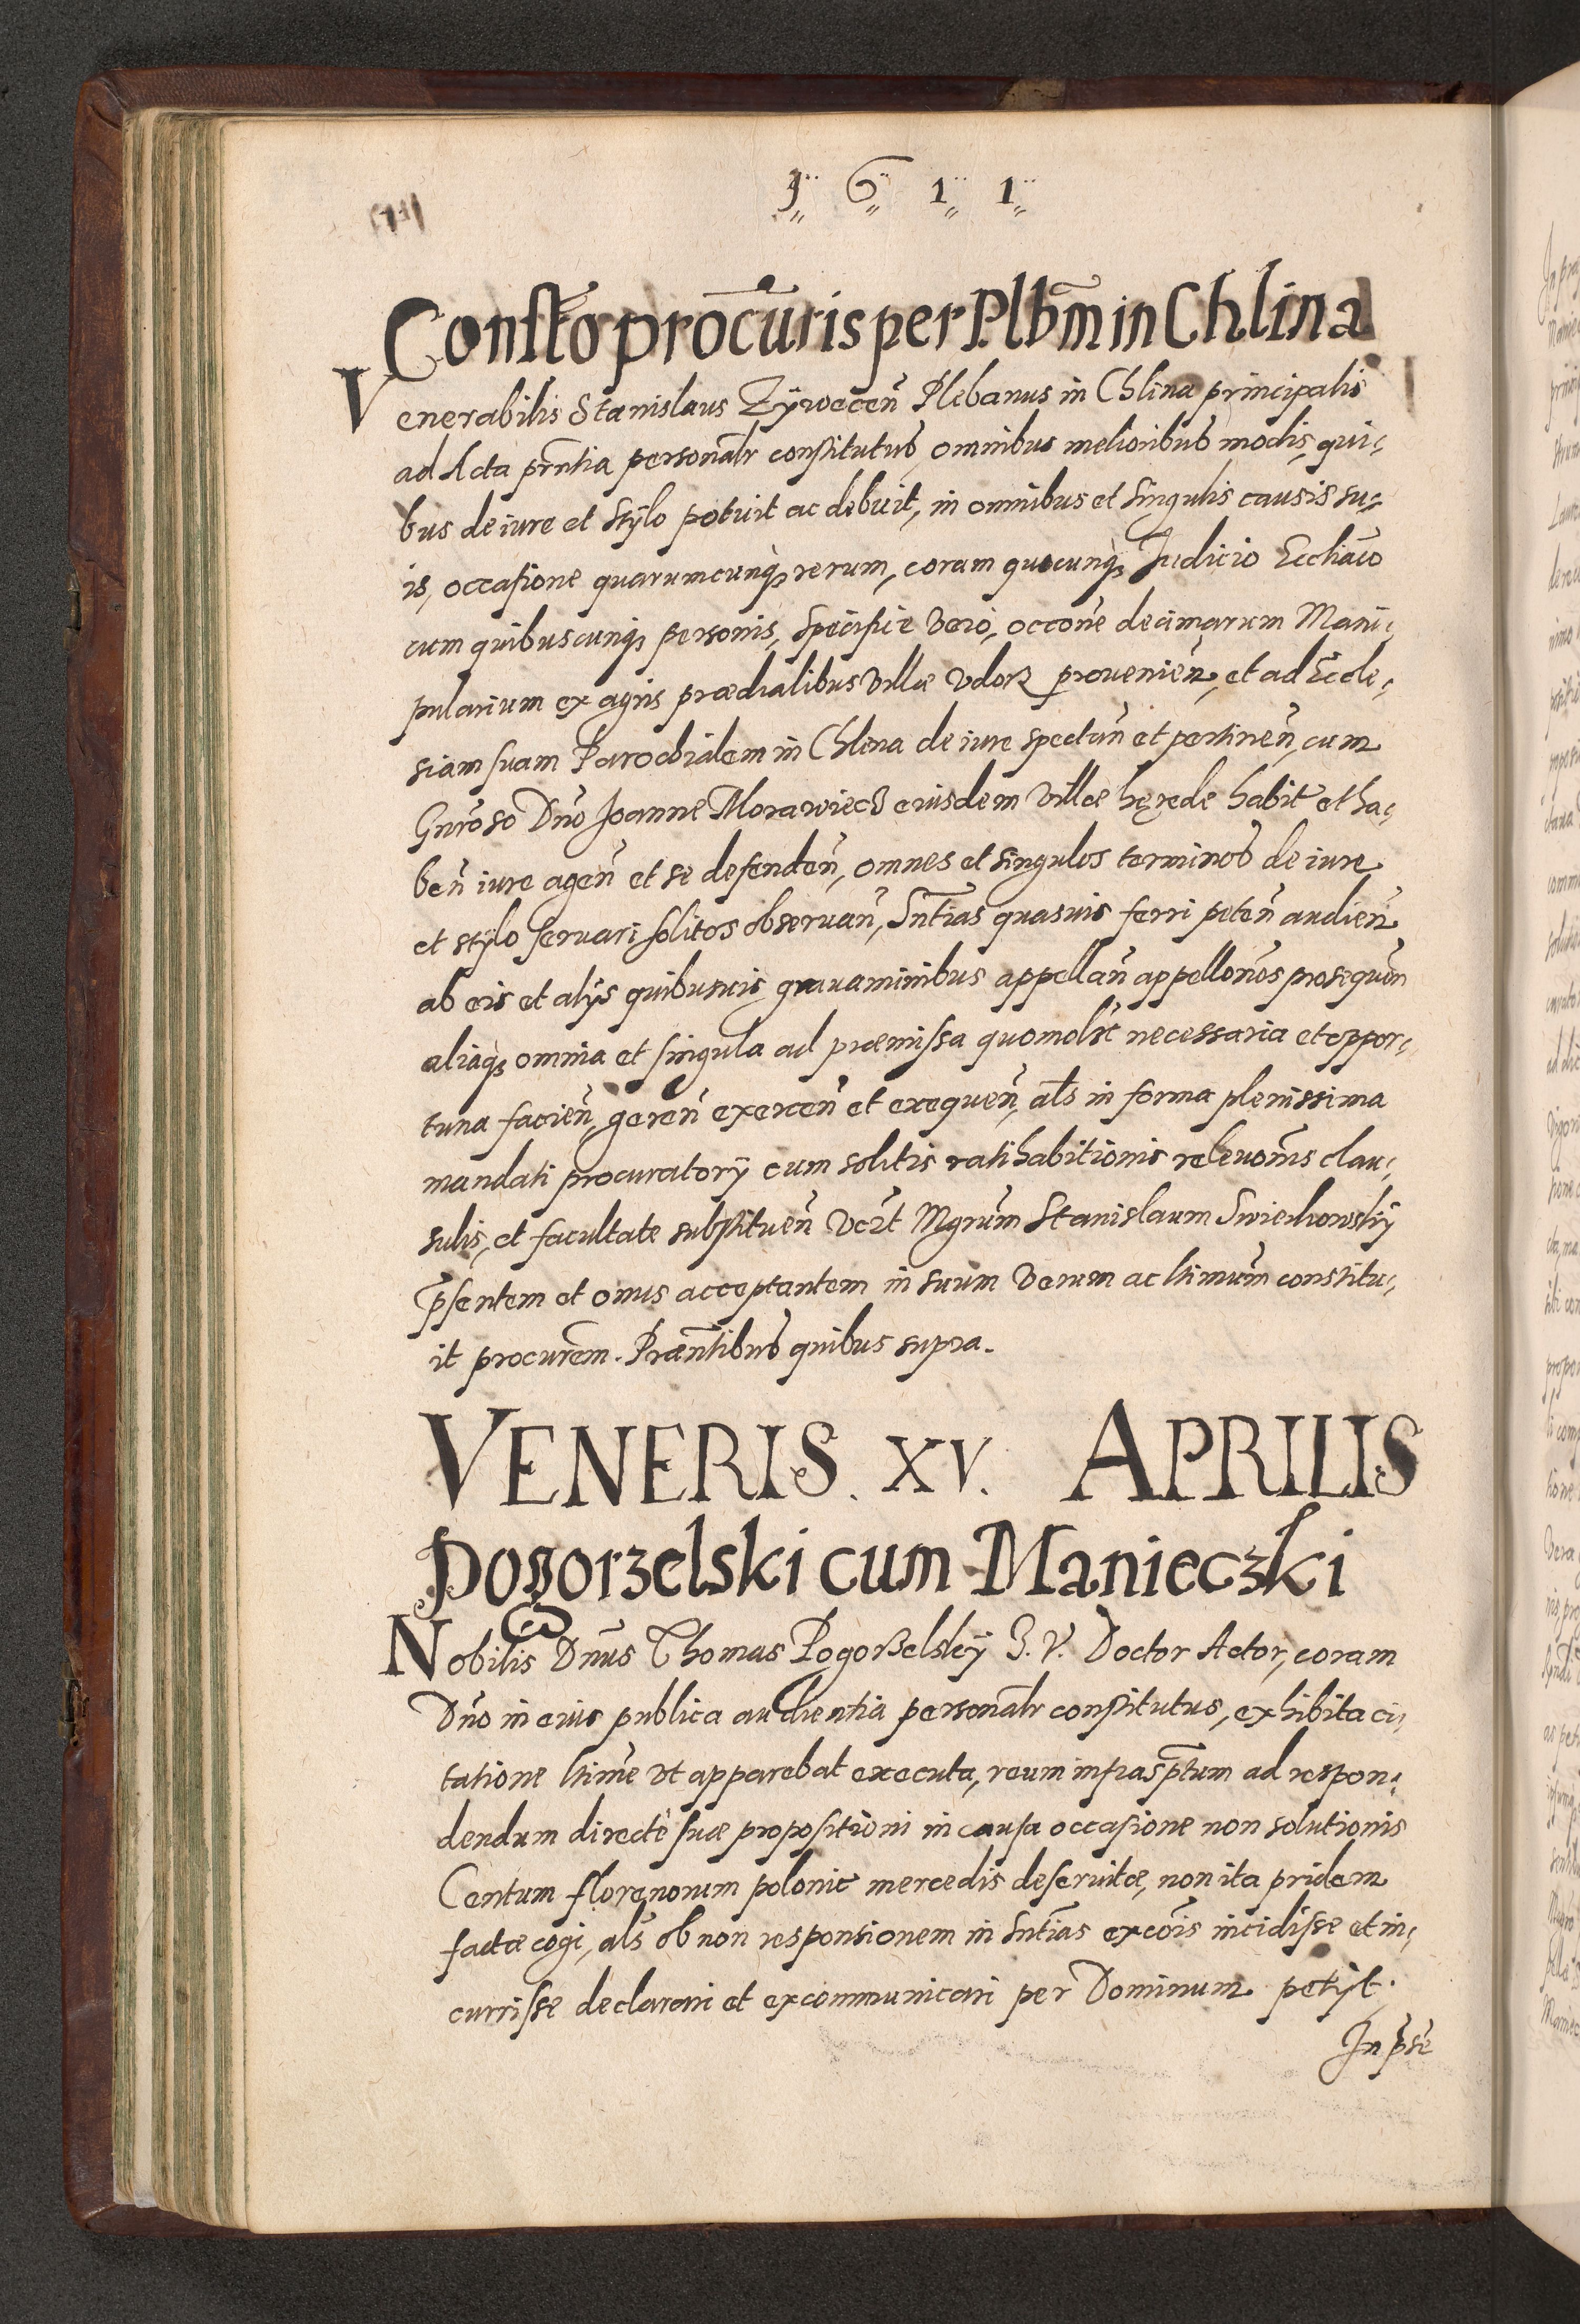 1 6 1 1
Constō procūris per Plbm̄ in Chlina
Venerabilis Stanislaus Zÿwecen̄ Plebanus in Chlina principalis
ad Acta prn̄tia personalr̄ constitutus, omnibus melioribus modis, qui-
bus de iure et stÿlo potuit ac debuit, in omnibus et singulis causis su-
is, occasione quarumcunq; rerum, coram quocunq; Judicio Eccliāco
cum quibuscunq; personis, specifice vero, occon̄e decimarum Mani-
pularium ex agris prædialibus villæ Udorz prouenien̄, et ad Eccle-
siam suam Parochialem in Chlina de iure spectan̄ et pertinen̄, cum
Gnr̄oso Dn̄o Joanne Morawiecz eiusdem villæ hęrede habit̄ et ha-
ben̄ iure agen̄ et se defenden̄, omnes et singulos terminos de iure
et stÿlo seruari solitos obseruan̄, Sntīas quasuis ferri peten̄ audien̄
ab eis et alÿs quibusuis grauaminibus appellan̄ appellon̄es prosequen̄
aliaq; omnia et singula ad præmissa quomolt̄ necessaria et oppor-
tuna facien̄, geren̄ exercen̄ et exequen̄, als̄ in forma plenissima
mandati procuratorÿ cum solitis ratihabitionis releuon̄is clau-
sulis, et facultate substituen̄ Ven̄t Mgrum̄ Stanislaum Swiechowskÿ
p̄sentem et onus acceptantem in suum verum ac ltimum̄ constitu-
it procurem̄. Præntībus quibus supra.
VENERIS. XV. APRILIS
Pogorzelski cum Manieczki
Nobilis Dn̄us Thomas Pogorzelskÿ J. V. Doctor Actor, coram
Dn̄o in eius publica audientia personalr̄ constitutus, exhibita ci-
tatione ltimē ut apparebat executa, reum infrasp̄tum ad respon-
dendum directè suæ propositioni in causa occasione non solutionis
Centum florenorum polonic mercedis deseruitæ, non ita pridem
factæ cogi, als̄ ob non responsionem in Sntīas excōis incidisse et in-
currisse declarari et excommunicari per Dominum petÿt.
In p̄sē